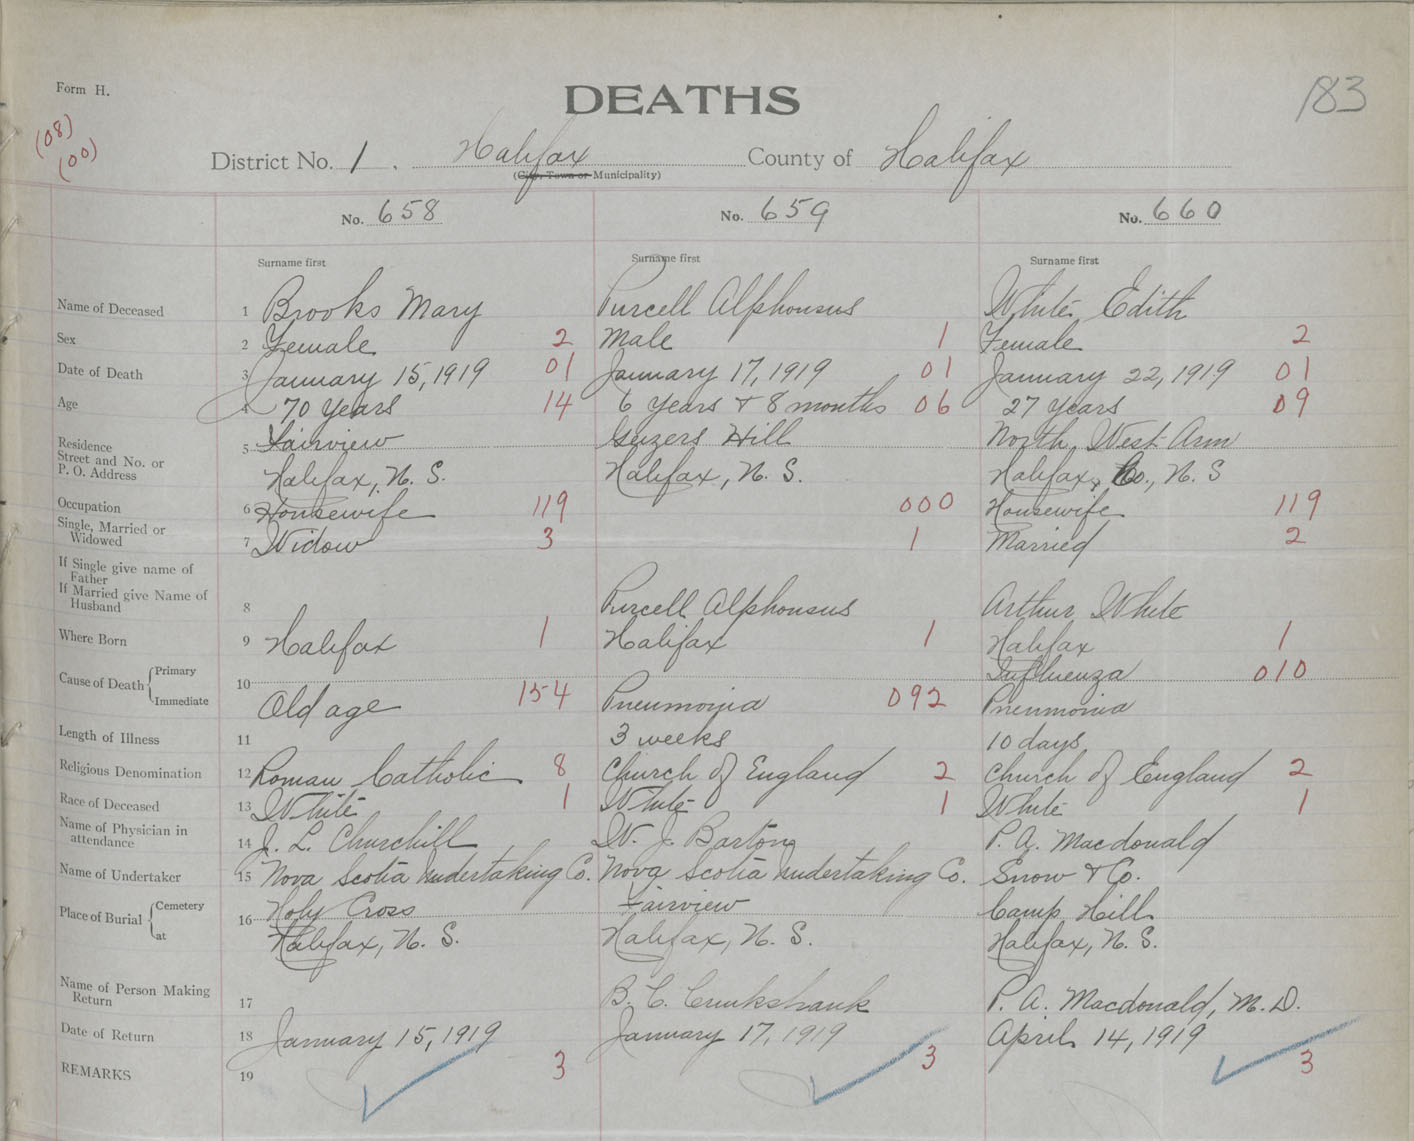 Form H.
DEATHS
183
(08)
(00)
District No. 1. Halifax County of Halifax
(City, Town or Municipality)
No. 658 No. 659 No. 660
Surname first Surname first Surname first
Name of Deceased 1 Brooks Mary Purcell Alphonsus White, Edith
Sex 2 Female 2 Male 1 Female 2
Date of Death 3 January 15, 1919 01 January 17, 1919 01 January 22, 1919 01
Age 4 70 Years 14 6 Years & 8 months 06 27 Years 09
Residence 5 Fairview Geizers Hill North, West Arm
Street and No. or
P. O. Address Halifax, N. S. Halifax, N. S. Halifax, Co., N. S
Occupation 6 Housewife 119 000 Housewife 119
Single, Married or
Widowed 7 Widow 3 1 Married 2
If Single give name of
Father
If Married give Name of
Husband 8 Purcell Alphonsus Arthur White
Where Born 9 Halifax 1 Halifax 1 Halifax 1
Cause of Death Primary 10 Influenza 010
Immediate Old age 154 Pneumonia 092 Pneumonia
Length of Illness 11 3 weeks 10 days
Religious Denomination 12 Roman Catholic 8 Church of England 2 Church of England 2
Race of Deceased 13 White 1 White 1 White 1
Name of Physician in
attendance 14 J. L. Churchill W. J. Barton P. A. Macdonald
Name of Undertaker 15 Nova Scotia Undertaking Co. Nova Scotia Undertaking Co. Snow & Co.
Place of Burial Cemetery 16 Holy Cross Fairview Camp Hill
at Halifax, N. S. Halifax, N. S. Halifax, N. S.
Name of Person Making
Return 17 B. C. Crinkshank P. A. Macdonald, M. D.
Date of Return 18 January 15, 1919 January 17, 1919 April 14, 1919
REMARKS 19 3 3 3